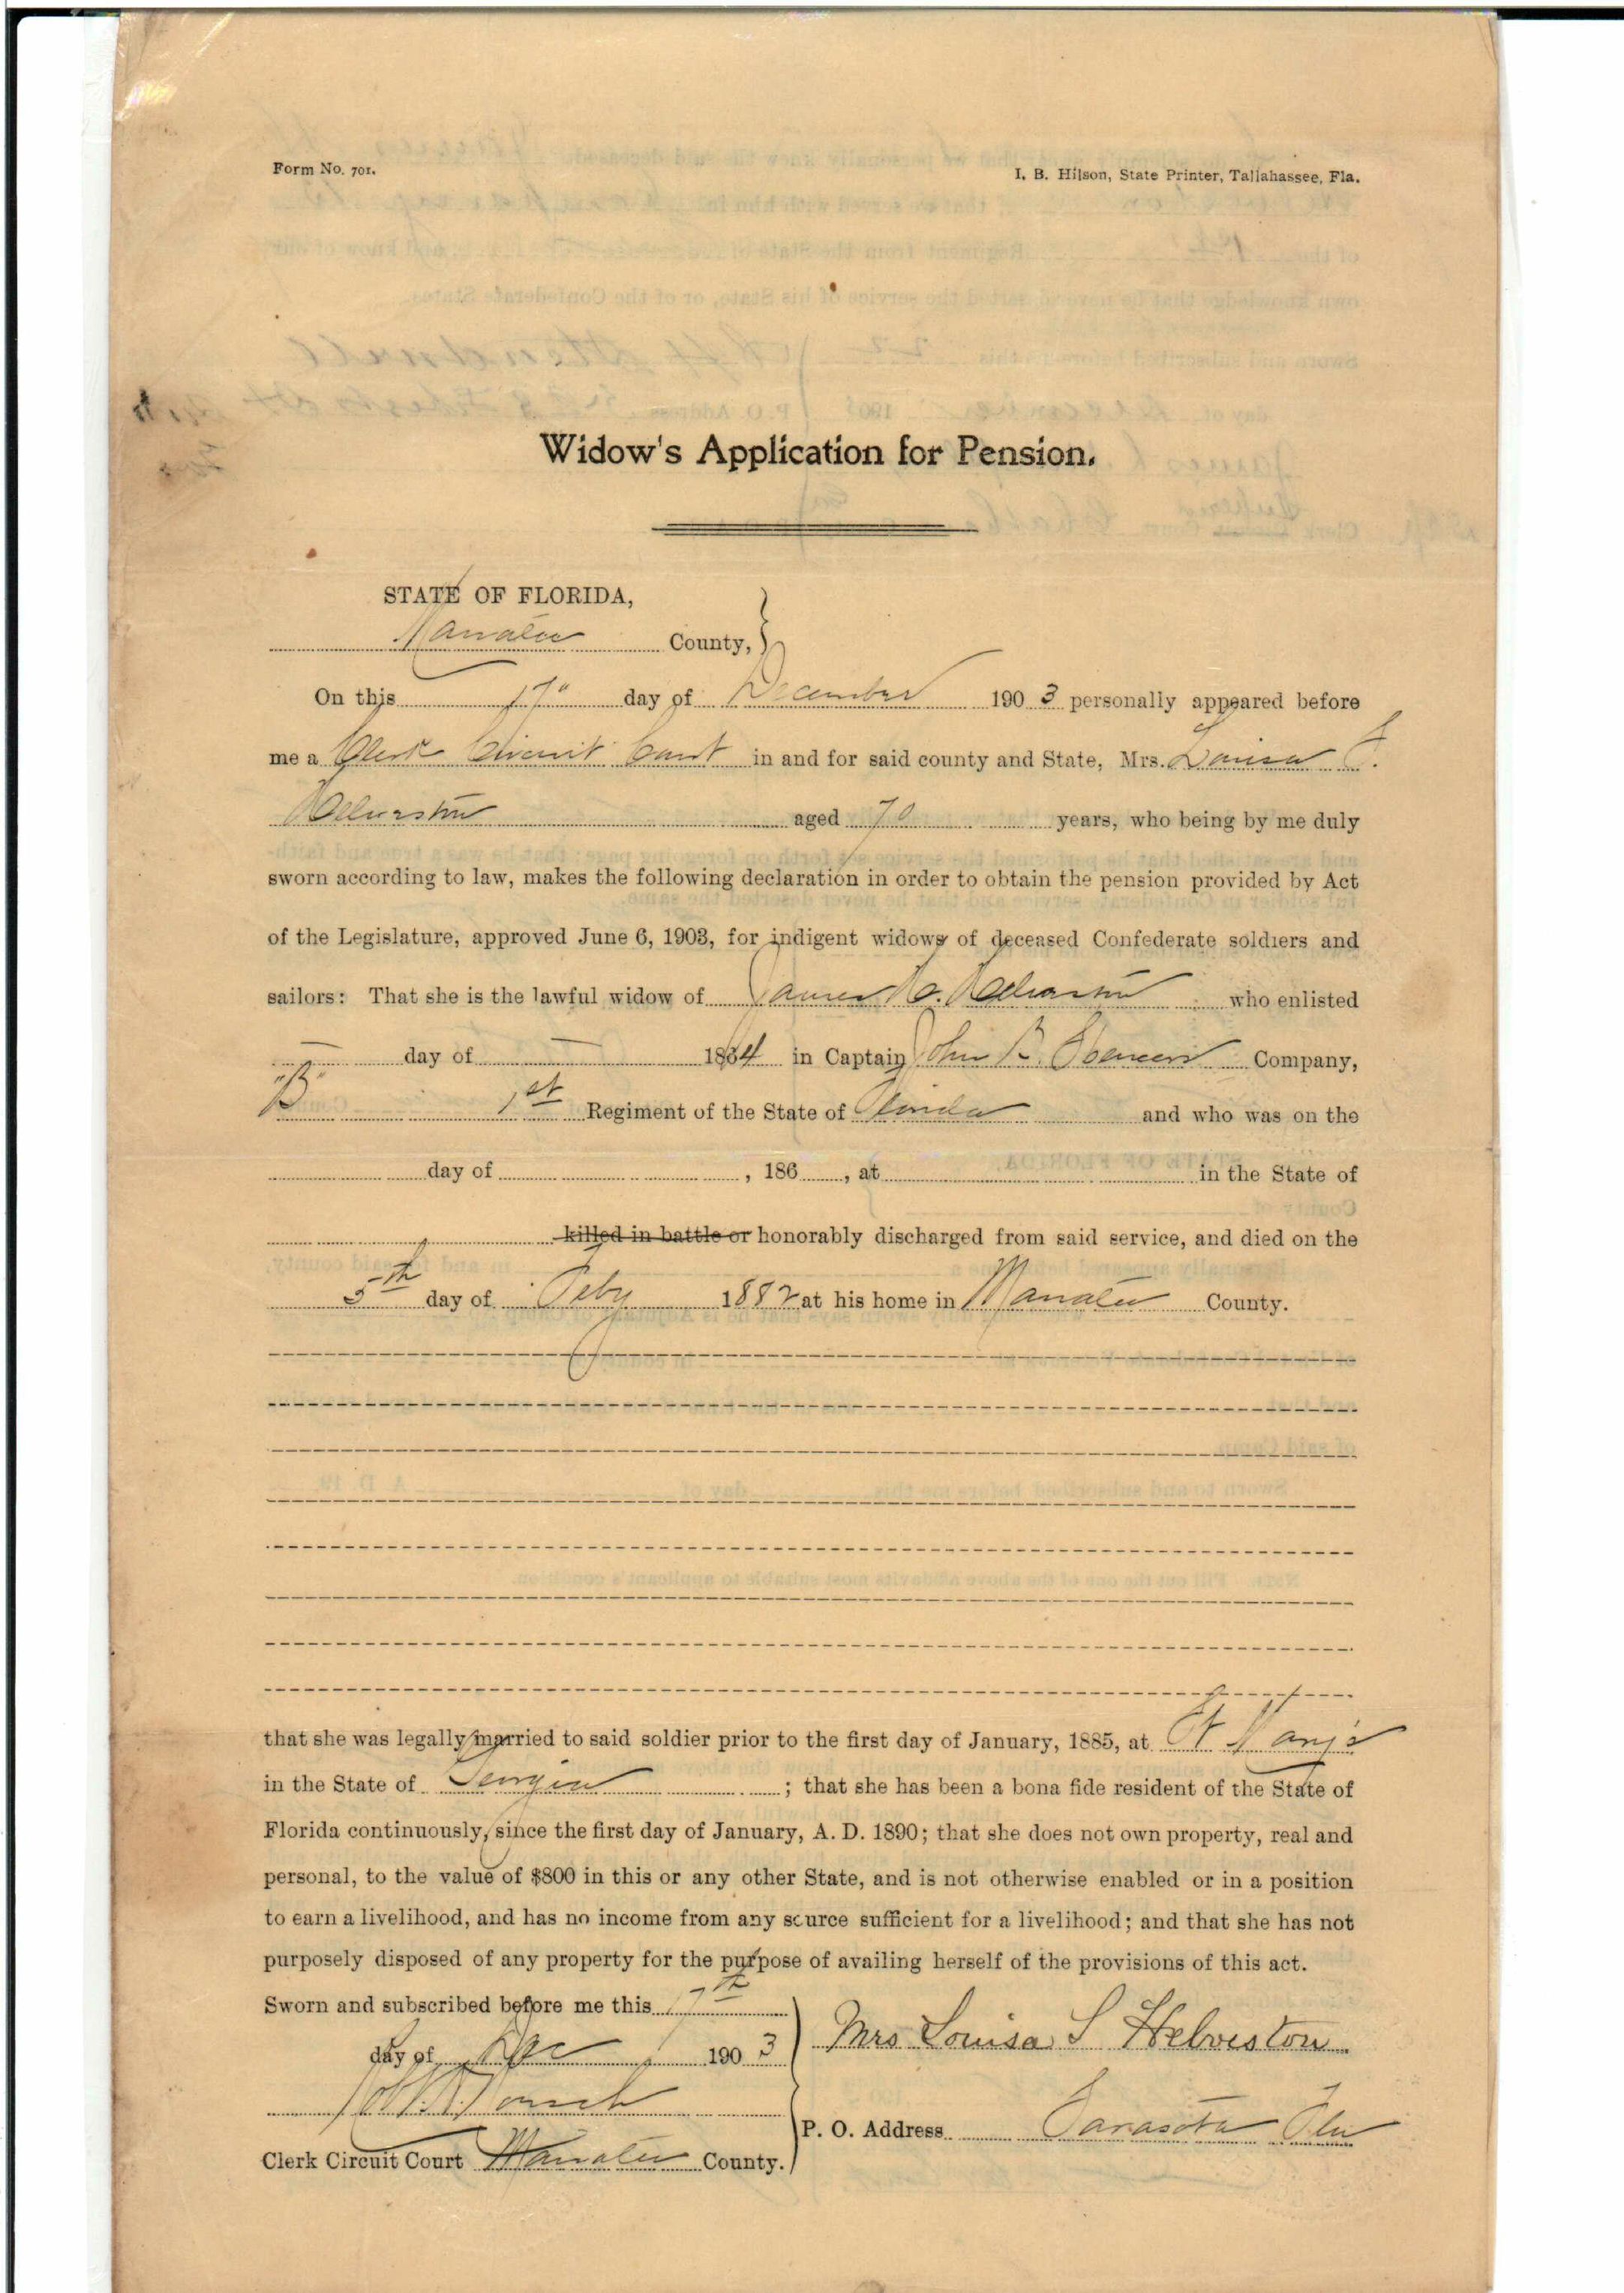 Form No. 701.
I. B. Hilson, State Printer, Tallahassee, Fla.
Widow's Application for Pension.
STATE OF FLORIDA,
Manatee County,
On this 17" day of December 1903 personally appeared before
me a Clerk Circuit Court in and for said county and State, Mrs. Louisa S.
Helveston aged 70 years, who being by me duly
sworn according to law, makes the following declaration in order to obtain the pension provided by Act
of the Legislature, approved June 6, 1903, for indigent widows of deceased Confederate soldiers and
sailors: That she is the lawful widow of James Helveston who enlisted
— day of — 1864 in Captain John Company,
"B" 1st Regiment of the State of Florida and who was on the
day of , 186 , at in the State of
killed in battle or honorably discharged from said service, and died on the
5th day of Feby 1882 at his home in Manatee County.
that she was legally married to said soldier prior to the first day of January, 1885, at St Mary's
in the State of Georgia ; that she has been a bona fide resident of the State of
Florida continuously, since the first day of January, A. D. 1890; that she does not own property, real and
personal, to the value of $800 in this or any other State, and is not otherwise enabled or in a position
to earn a livelihood, and has no income from any source sufficient for a livelihood; and that she has not
purposely disposed of any property for the purpose of availing herself of the provisions of this act.
Sworn and subscribed before me this 17th
day of Dec 1903
Mrs Louisa S Helveston
P. O. Address Sarasota Fla
Clerk Circuit Court Manatee County.